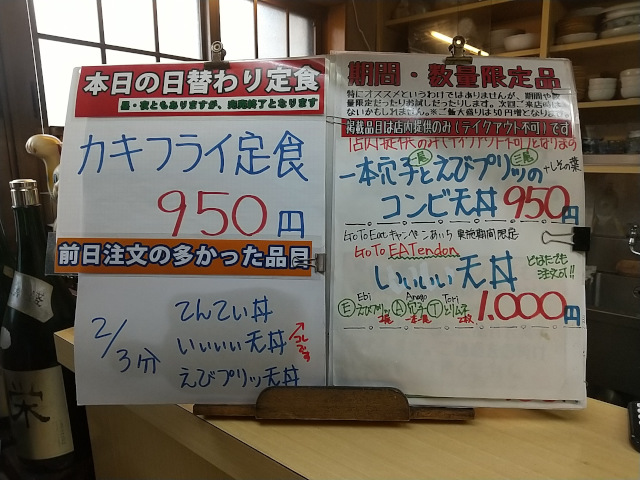 本日の日替わり定食
昼・夜ともありますが、売切終了となります
カキフライ定食
950円
前日注文の多かった品目
2/3分
てんてい丼
いいいい天丼
コレです
えびプリッ天丼
期間・数量限定品
特にオススメというわけではありませんが、期間や数
量限定だったりお試しだったりします。次回ご来店時は
ないかもしれません。※ご飯大盛りは50円増となります。
掲載品目は店内提供のみ(テイクアウト不可)です
一本穴子とえびプリッの
一尾
三尾
+しその葉
コンビ天丼 950円
Go To Eat キャンペーンあいち 実施期間限定
Go To EATendon
いいいい天丼
どなたでも
注文可!!
Ebi Anago Tori
Ⓔえびプリッ Ⓐ穴子 Ⓣとりムネ
2尾 一本 2枚
1.000円
栄